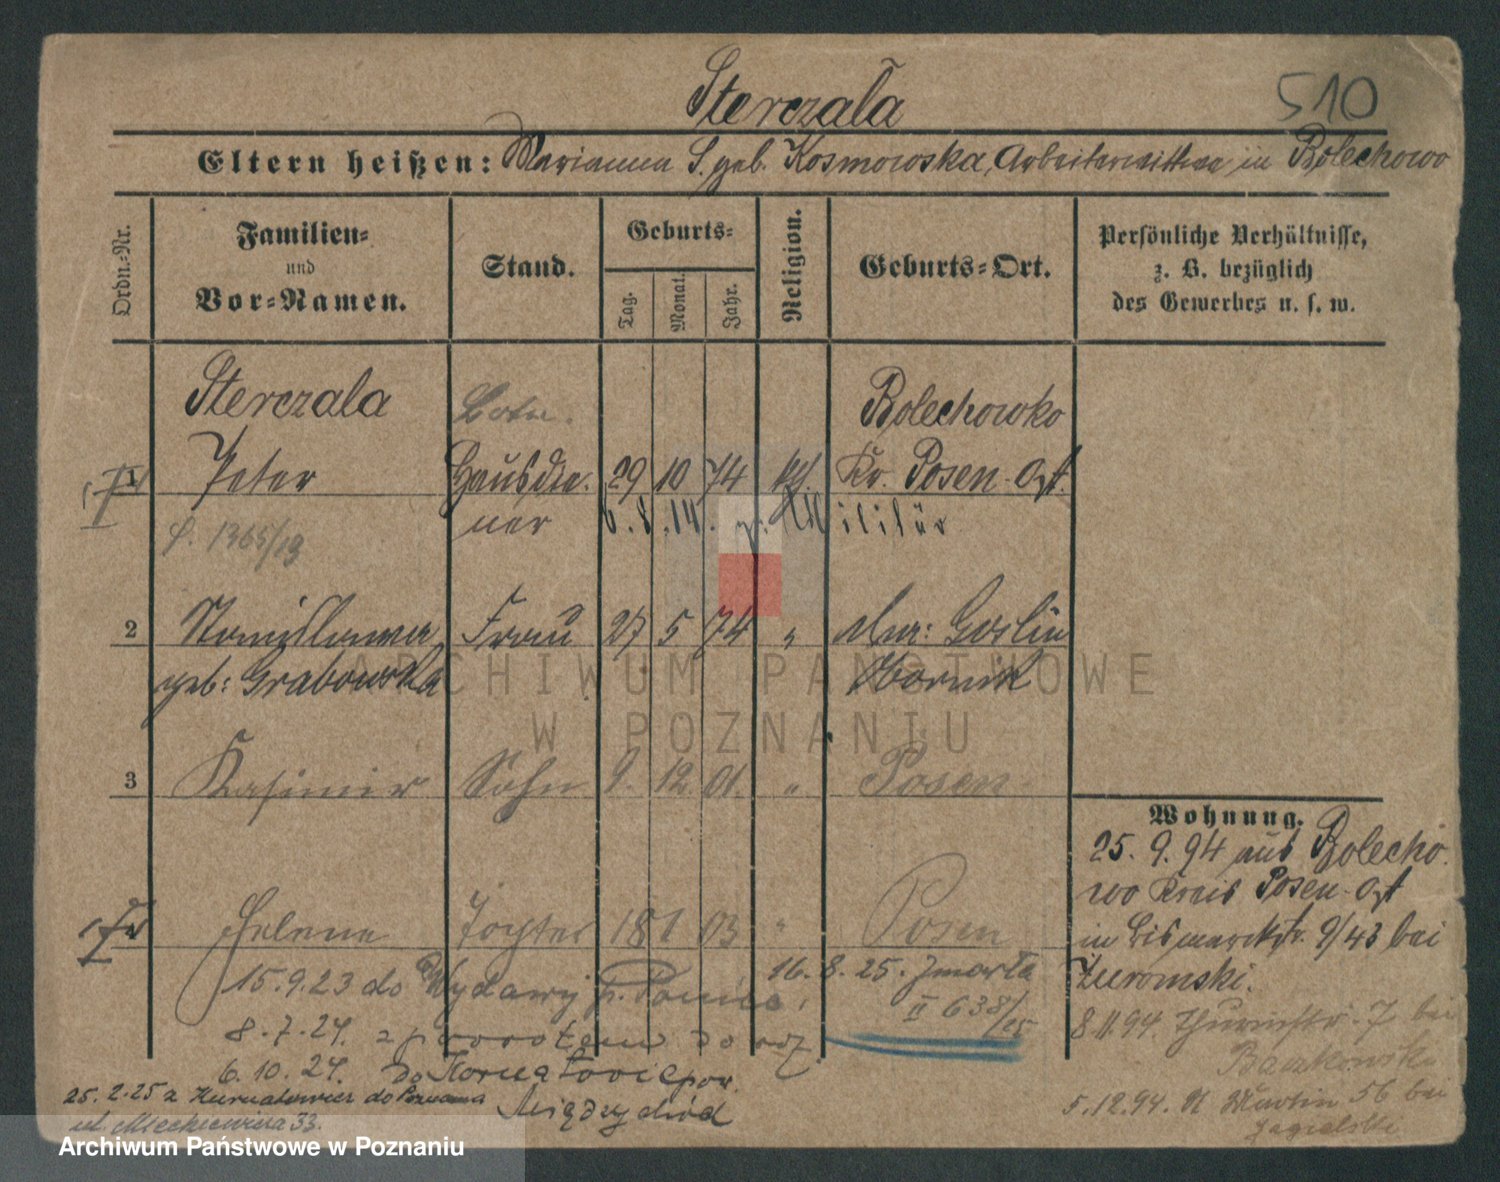 Sterczała
510
Eltern heißen: Marianna S. geb. Kosmowska, Arbeiterwittwe in Bolechowo
Ordn.-Nr.
Familien- und Vor-Namen.
Stand.
Geburts-
Tag. Monat. Jahr.
Religion.
Geburts-Ort.
Persönliche Verhältnisse, z. B. bezüglich des Gewerbes u. s. w.
Sterczala Bolechowko
1 Peter Hausdie- 29 10 74 kth. Kr. Posen-Ost.
ner 6.8.14. z: Militär
1365/13
2 Stanislawa Frau 27 5 74 " Mur: Goslin
geb: Grabowska Obornik
3 Kasimir Sohn 9. 12. 01. " Posen
Helene Tochter 18 1 03 " Posen
15.9.23 do
16. 8. 25. zmarła
II 638/25
8.7.24. z powrotem do
6.10.24. do pow.
Międzychód
25.2.25 z do Poznania
ul. Mickiewicza 33.
Wohnung.
25. 9. 94 aus Bolecho-
wo Kreis Posen-Ost
in Bismarckstr. 9/43 bei
Żuromski.
8.11.94. 7 bei
5.12.94. St Martin 56 bei
Jagielski
ARCHIWUM PAŃSTWOWE
W POZNANIU
Archiwum Państwowe w Poznaniu